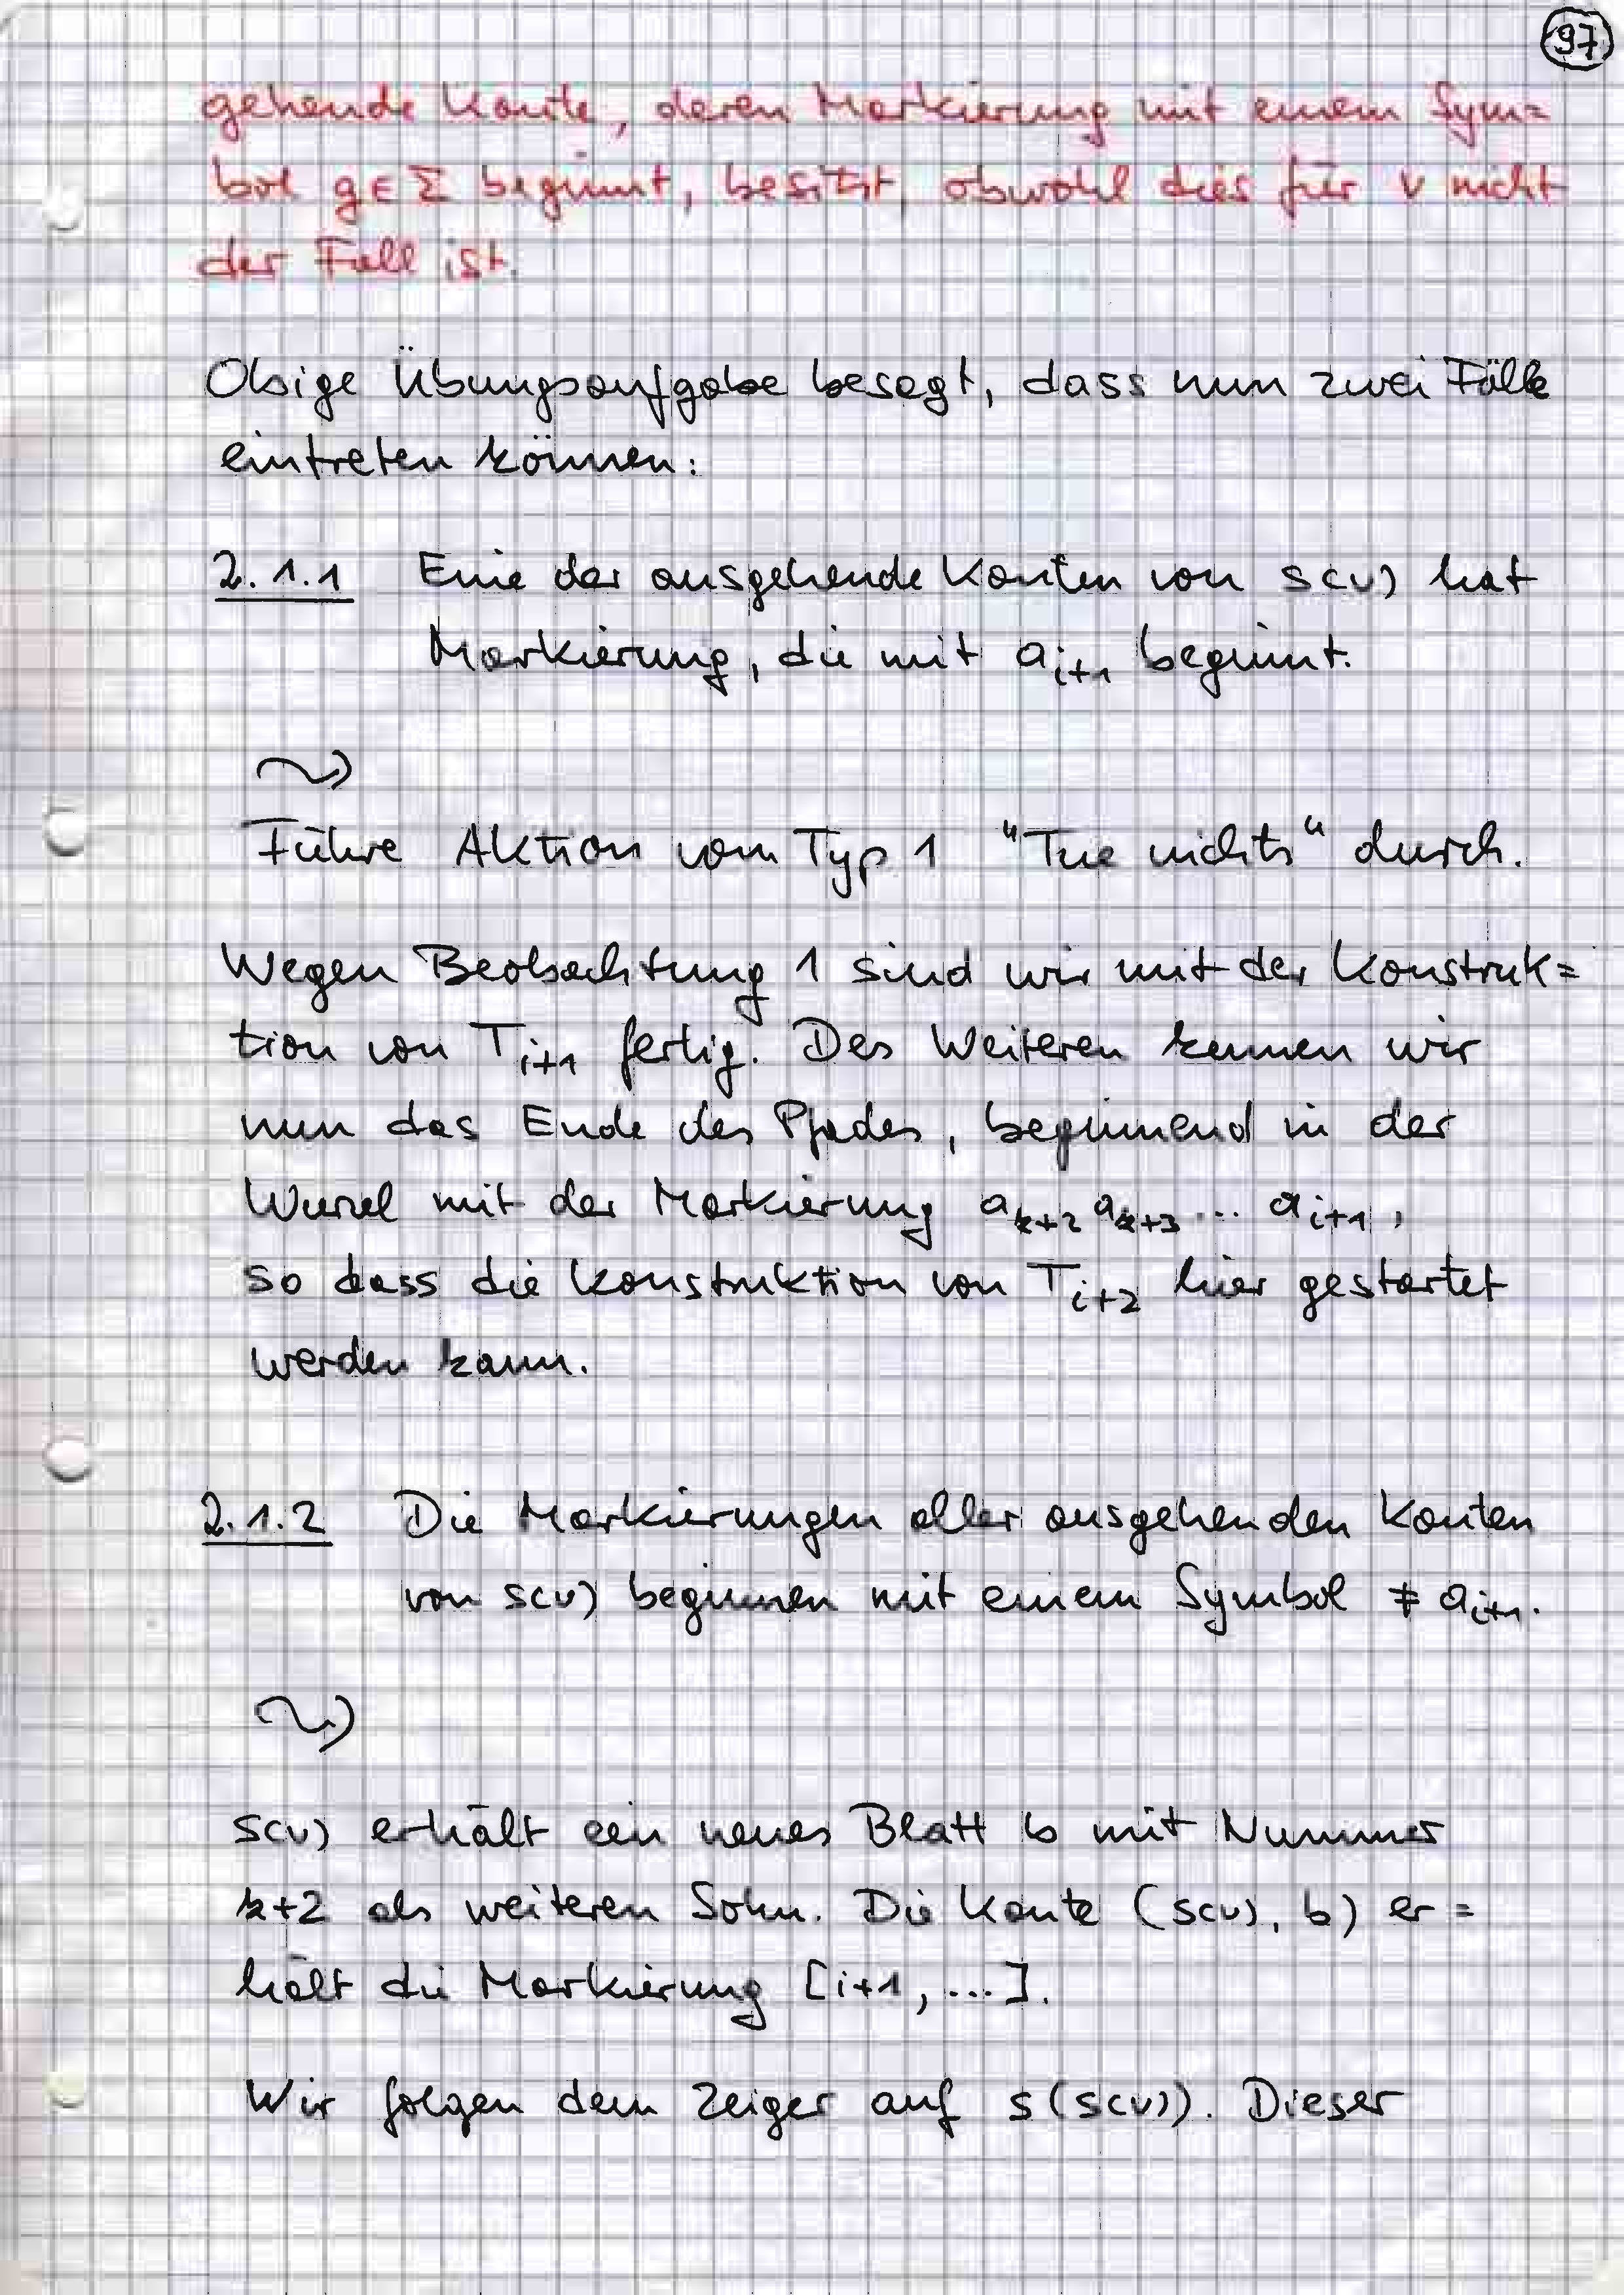 97
gehende Kante, deren Markierung mit einem Sym=
bol g∈Σ beginnt, besitzt, obwohl dies für v nicht
der Fall ist.
Obige Übungsaufgabe besagt, dass nun zwei Fälle
eintreten können:
2.1.1 Eine der ausgehende Kanten von s(v) hat
Markierung, die mit a_{i+1} beginnt.
⤳
Führe Aktion vom Typ 1 "Tue nichts" durch.
Wegen Beobachtung 1 sind wir mit der Konstruk=
tion von T_{i+1} fertig. Des Weiteren kennen wir
nun das Ende des Pfades, beginnend in der
Wurzel mit der Markierung a_{k+2} a_{k+3} ... a_{i+1},
so dass die Konstruktion von T_{i+2} hier gestartet
werden kann.
2.1.2 Die Markierungen aller ausgehenden Kanten
von s(v) beginnen mit einem Symbol ≠ a_{i+1}.
⤳
s(v) erhält ein neues Blatt b mit Nummer
k+2 als weiteren Sohn. Die Kante (s(v), b) er=
hält die Markierung [i+1, ...].
Wir folgen dem Zeiger auf s(s(v)). Dieser